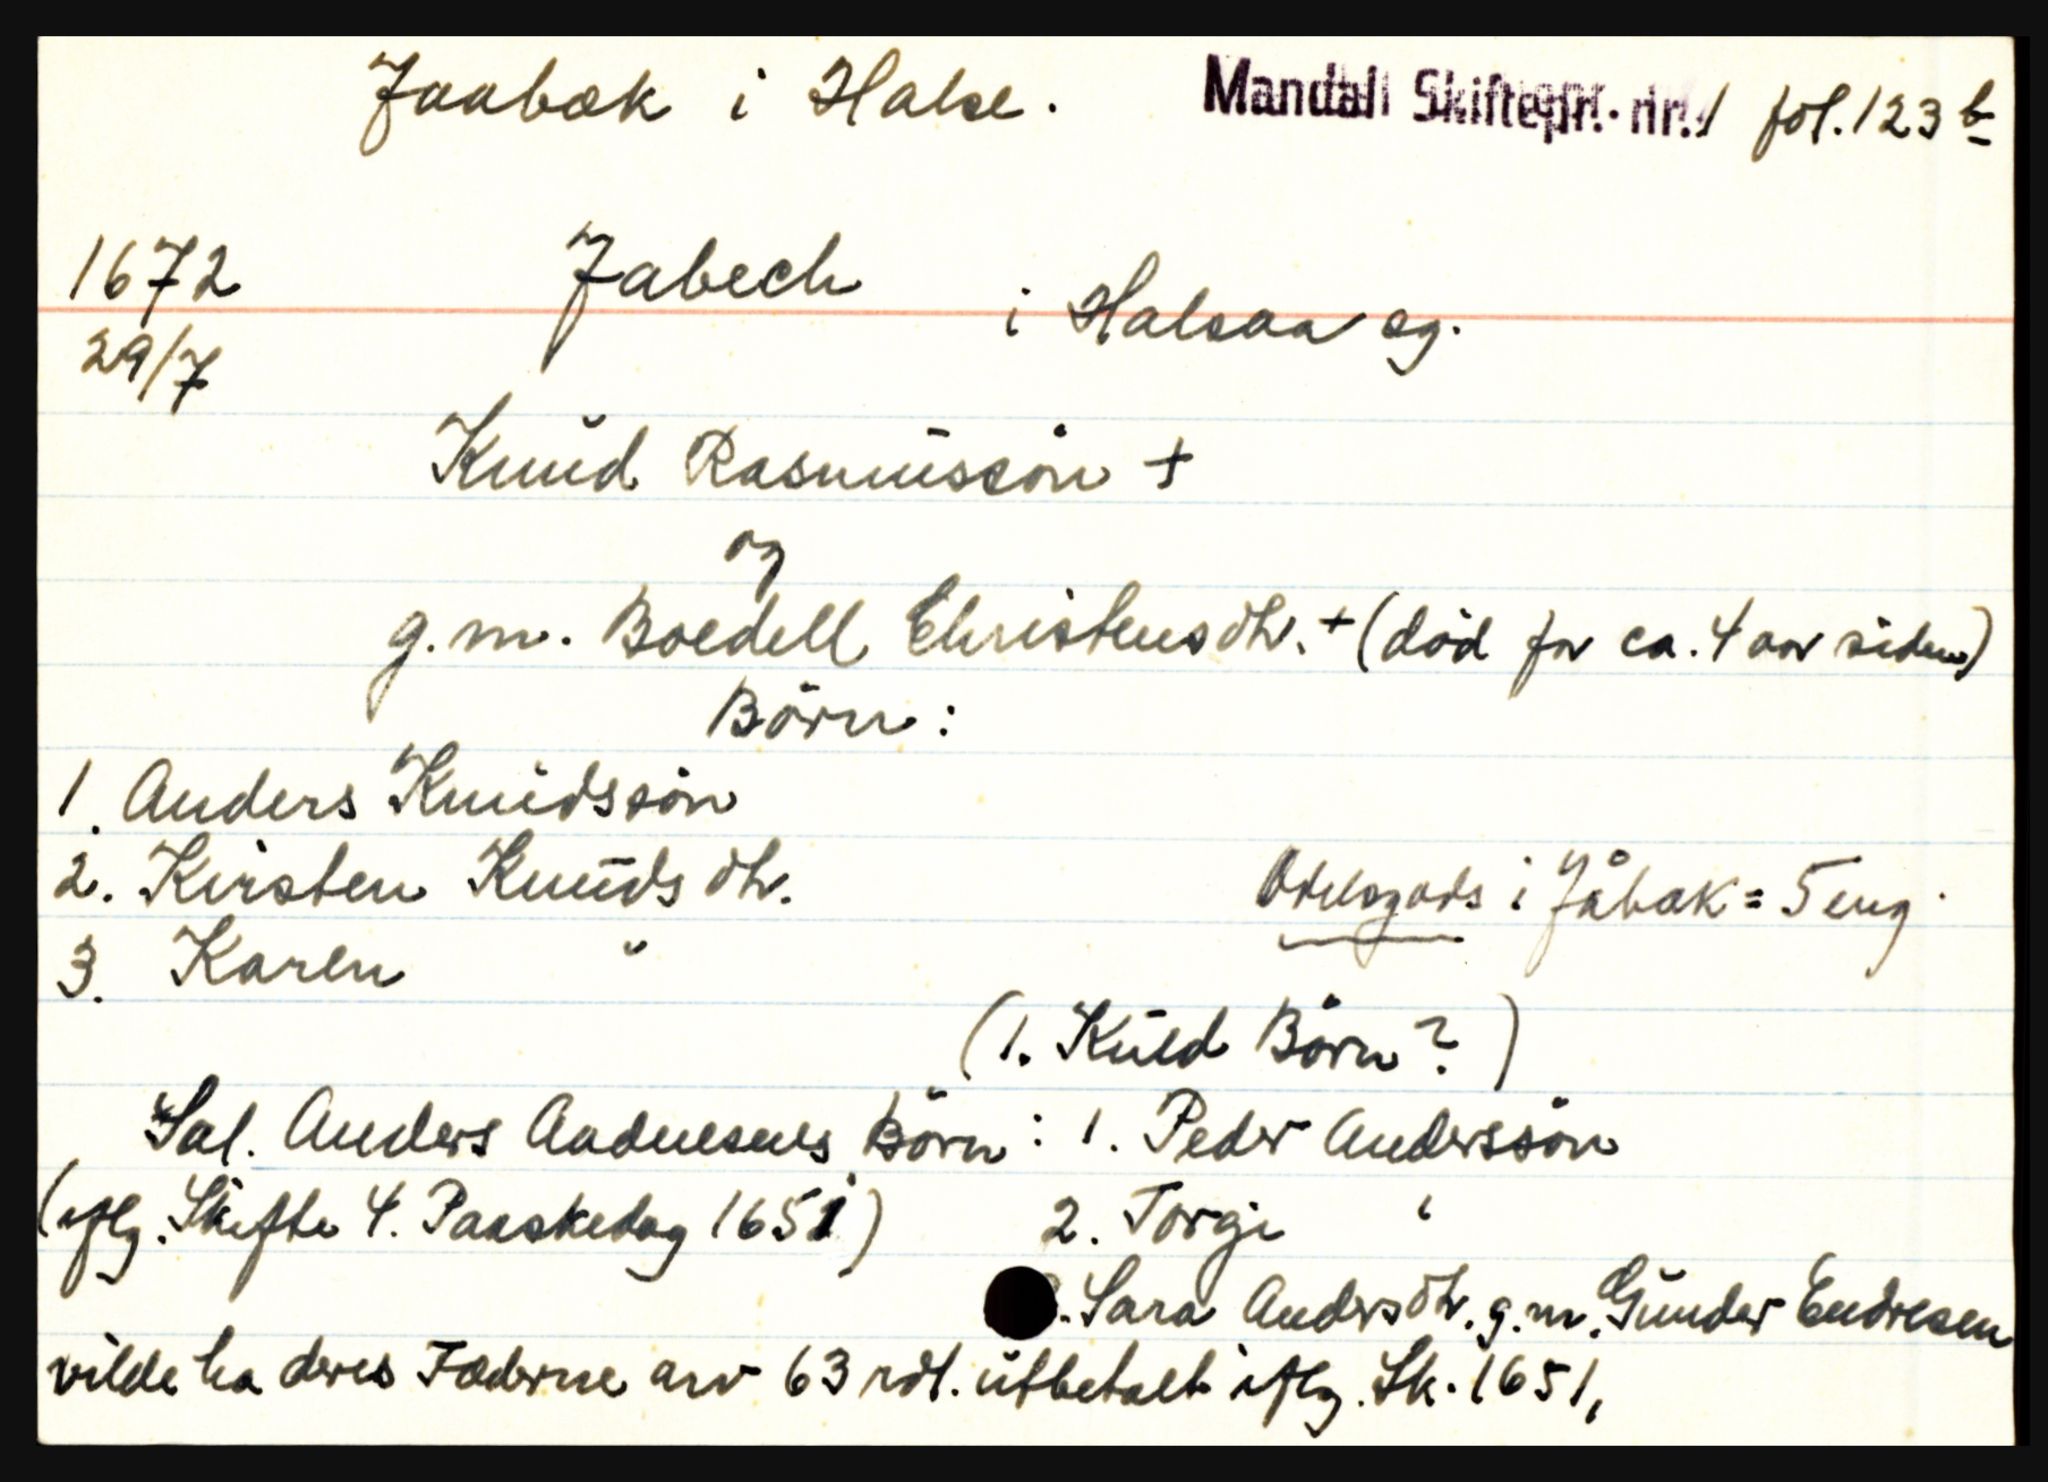 Jaabæk i Halse. Mandal Skiftepr. nr. 1 fol. 123 b
1672 Jabech i Halsaa sg.
29/7
Knud Rasmussön +
og
g.m. Boedell Christensdtr. + (död for ca. 4 aar siden)
Börn:
1. Anders Knudssön
2. Kirsten Knudsdtr.
Odelsgods i Jåbæk = 5 eng.
3. Karen "
(1. Kuld Börn?)
Sal. Anders Aadnesens Börn: 1. Peder Anderssön
(iflg. Skifte 4. Paaskedag 1651) 2. Torge "
3. Sara Andersdtr. g.m. Gunder Endresen
vilde ha deres Fæderne arv 63 rdl. utbetalt iflg. Sk. 1651,